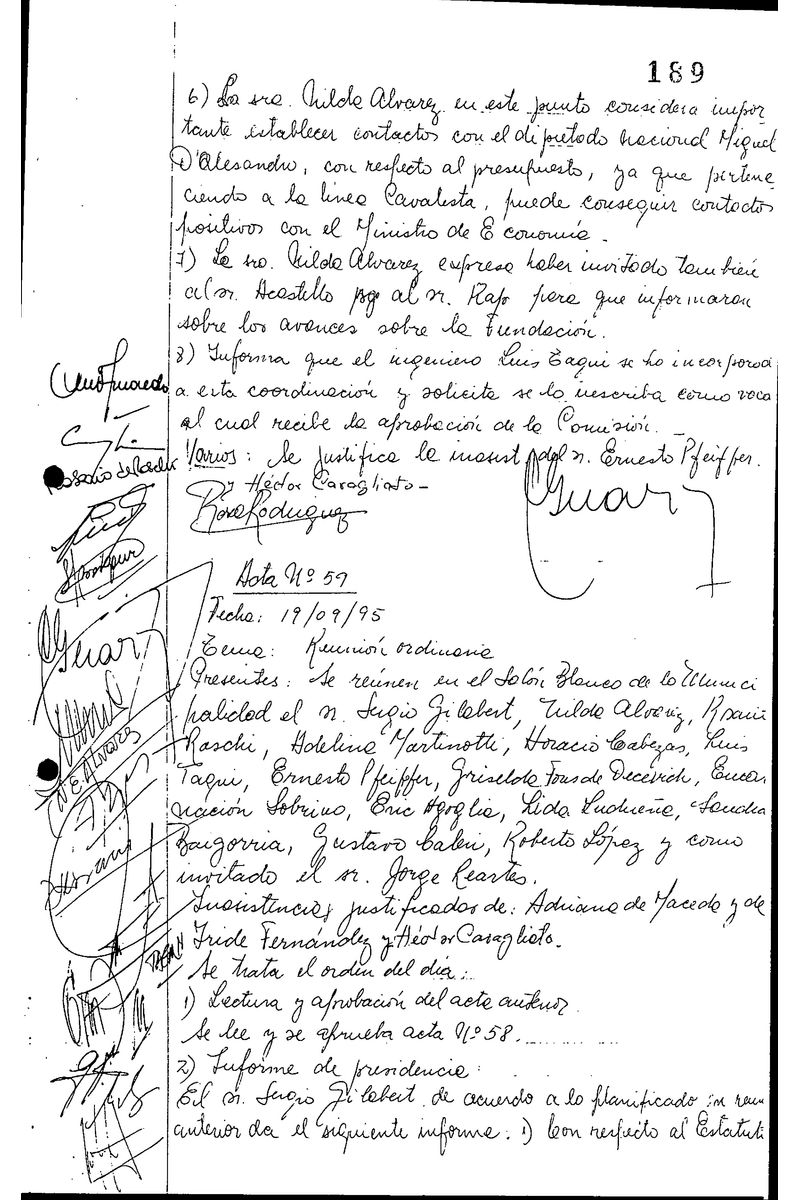 189
6) La sra. Nilda Alvarez en este punto considera impor
tante establecer contactos con el diputado nacional Miguel
D'Alesandro, con respecto al presupuesto, ya que pertene
ciendo a la línea Cavalista, puede conseguir contactos
positivos con el Ministro de Economía.
7) La sra. Nilda Alvarez expresa haber invitado también
al sr. Acastello y al sr. Rap para que informaran
sobre los avances sobre la Fundación.
8) Informa que el ingeniero Luis Taqui se ha incorporad
a esta coordinación y solicita se lo inscriba como voca
al cual recibe la aprobación de la Comisión.
Varios: Se justifica la inasist. del sr. Ernesto Pfeiffer.
y Héctor Caragliato -
Rosa Rodriguez
Acta Nº 59
Fecha: 19/09/95
Tema: Reunión ordinaria
Presentes: Se reúnen en el Salón Blanco de la Munici
palidad el sr. Sergio Gilabert, Nilda Alvarez,
Raschi, Adelina Martinotti, Horacio Cabezas, Luis
Taqui, Ernesto Pfeiffer, Griselda Fons de Decevich, Encar
nación Sobrino, Eric Agoglia, Lida Ludueña, Sandra
Baigorria, Gustavo Calvi, Roberto López y como
invitado el sr. Jorge Reartes.
Inasistencias justificadas de: Adriana de Macedo y de
Iride Fernández y Héctor Caragliato.
Se trata el orden del día:
1) Lectura y aprobación del acta anterior
Se lee y se aprueba acta Nº 58.
2) Informe de presidencia:
El sr. Sergio Gilabert de acuerdo a lo planificado en reun
anterior da el siguiente informe: 1) Con respecto al Estatut
N E Alvarez